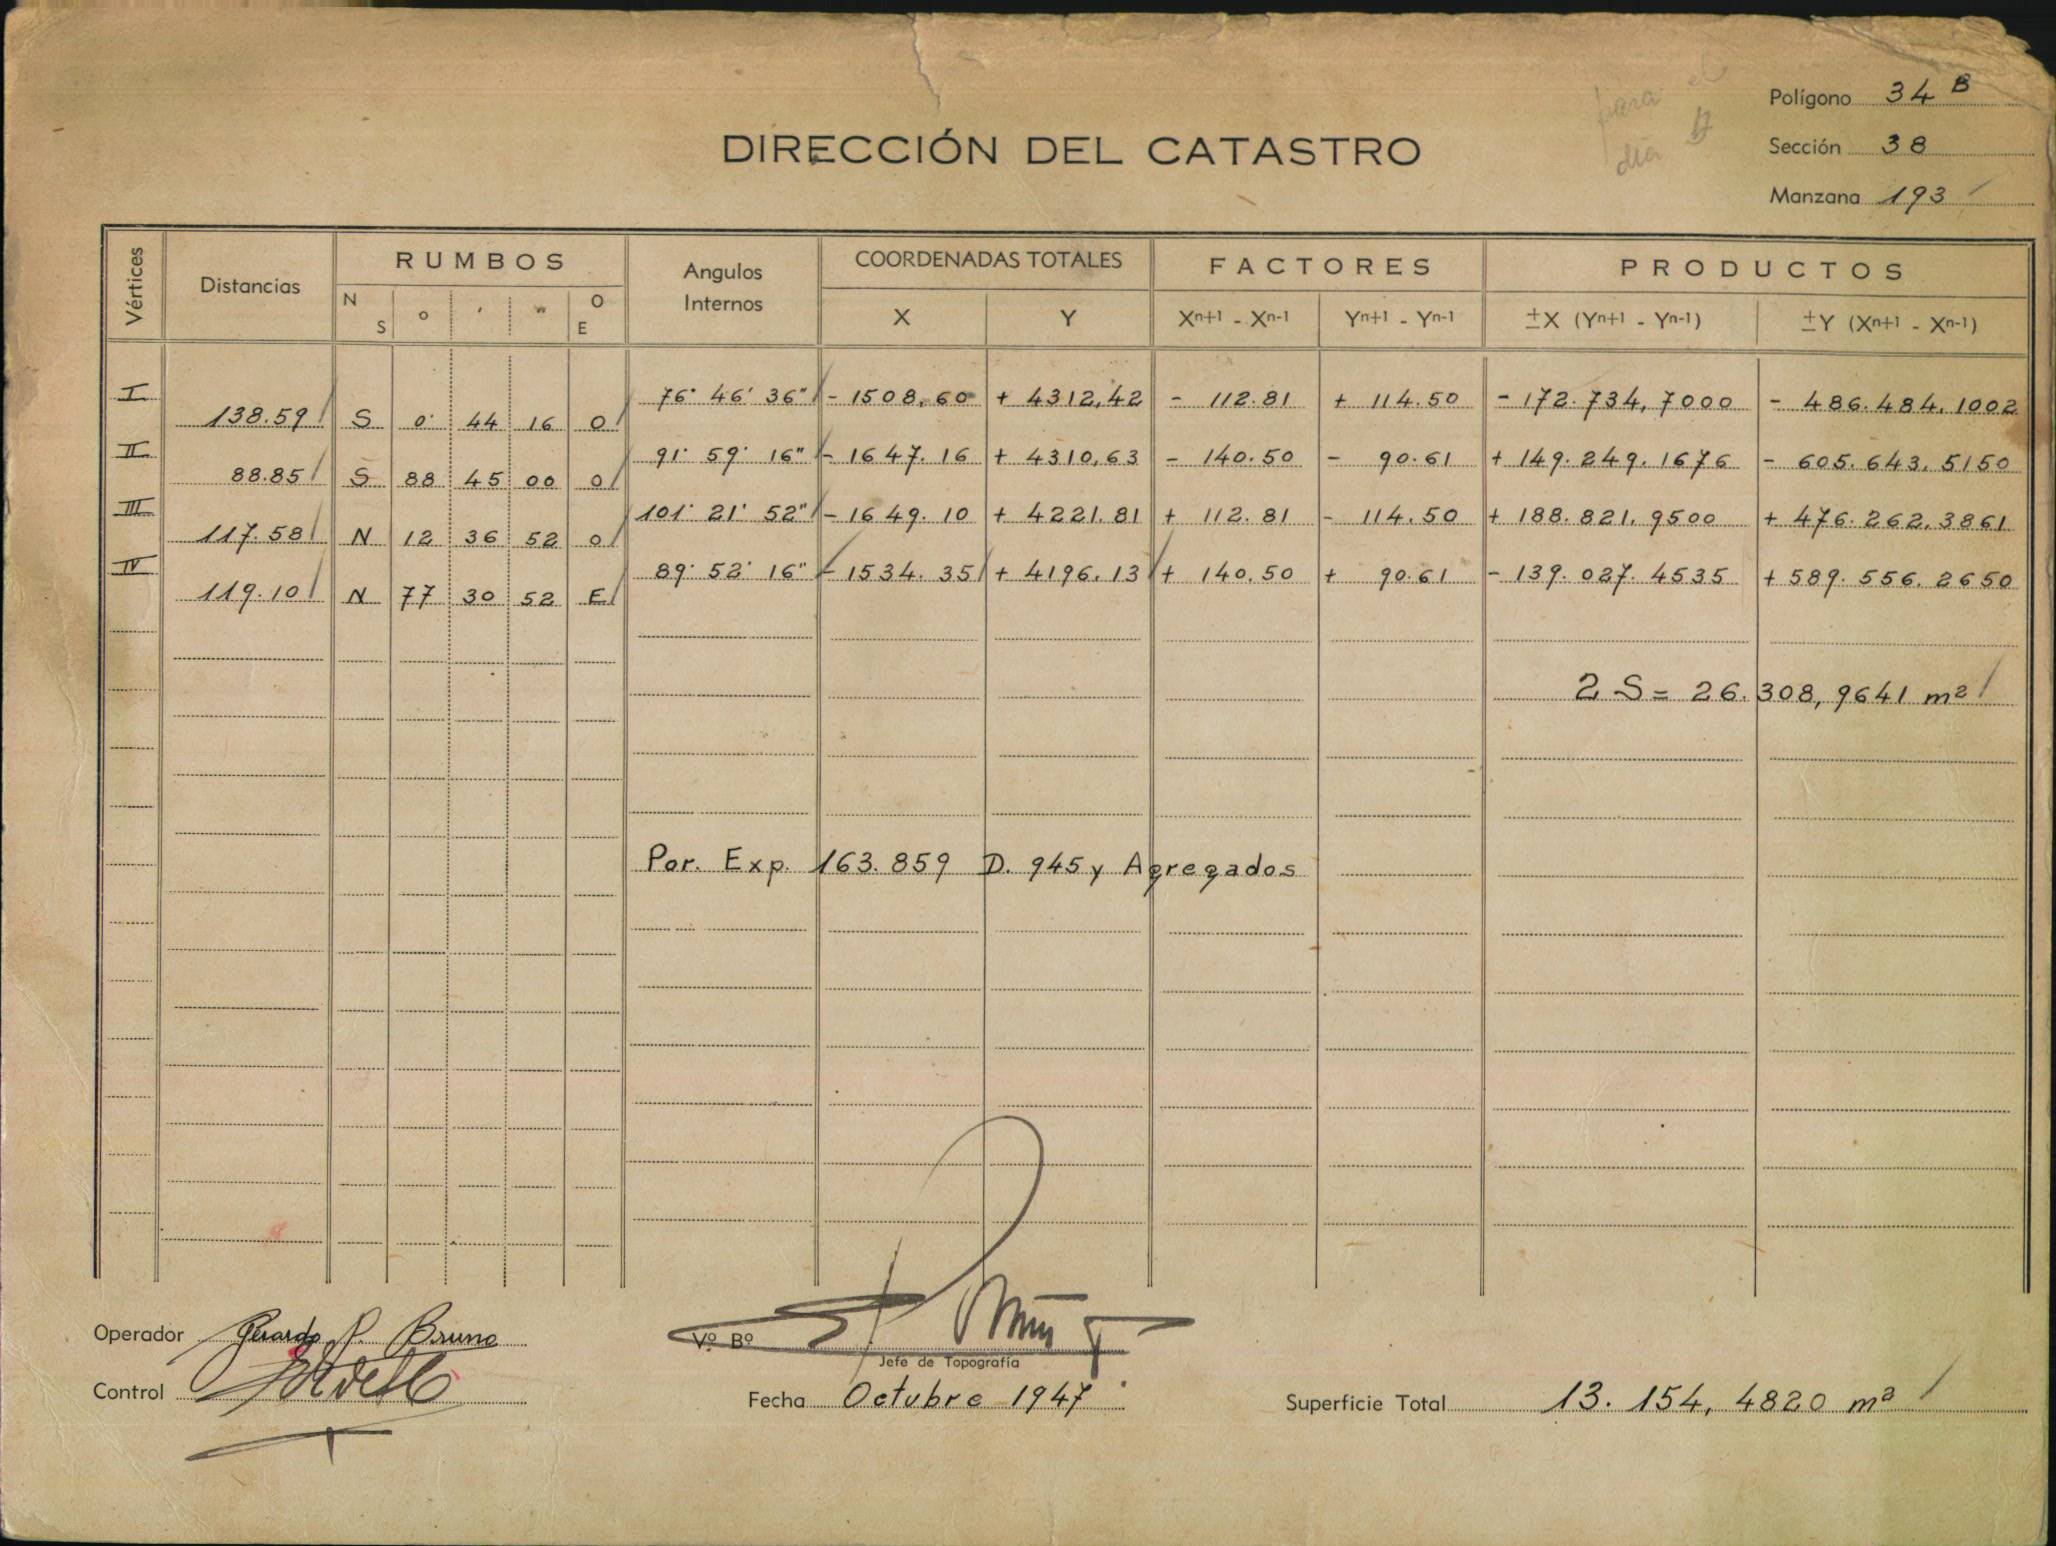 para el
día 17
Polígono 34 B
DIRECCIÓN DEL CATASTRO
Sección 38
Manzana 193
Vértices Distancias RUMBOS Angulos Internos COORDENADAS TOTALES FACTORES PRODUCTOS
N S o ' " O E X Y Xn+1 - Xn-1 Yn+1 - Yn-1 ±X (Yn+1 - Yn-1) ±Y (Xn+1 - Xn-1)
I 76° 46' 36" - 1508,60 + 4312,42 - 112.81 + 114.50 - 172.734,7000 - 486.484.1002
138.59 S 0° 44 16 O
II 91° 59' 16" - 1647.16 + 4310,63 - 140.50 - 90.61 + 149.249.1676 - 605.643.5150
88.85 S 88 45 00 O
III 101° 21' 52" - 1649.10 + 4221.81 + 112.81 - 114.50 + 188.821.9500 + 476.262.3861
117.58 N 12 36 52 O
IV 89° 52' 16" - 1534.35 + 4196.13 + 140.50 + 90.61 - 139.027.4535 + 589.556.2650
119.10 N 77 30 52 E
2 S = 26.308,9641 m²
Por. Exp. 163.859 D. 945 y Agregados
Operador Gerardo P. Bruno
Vº Bº
Jefe de Topografía
Control
Fecha Octubre 1947
Superficie Total 13.154,4820 m²